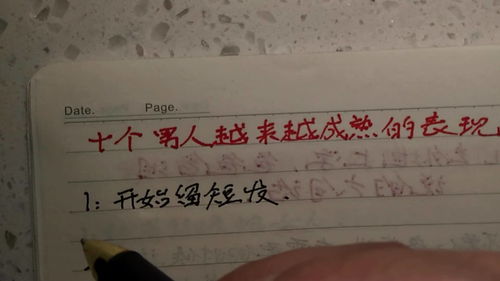 Date. Page.
十个男人越来越成熟的表现
1: 开始留短发.